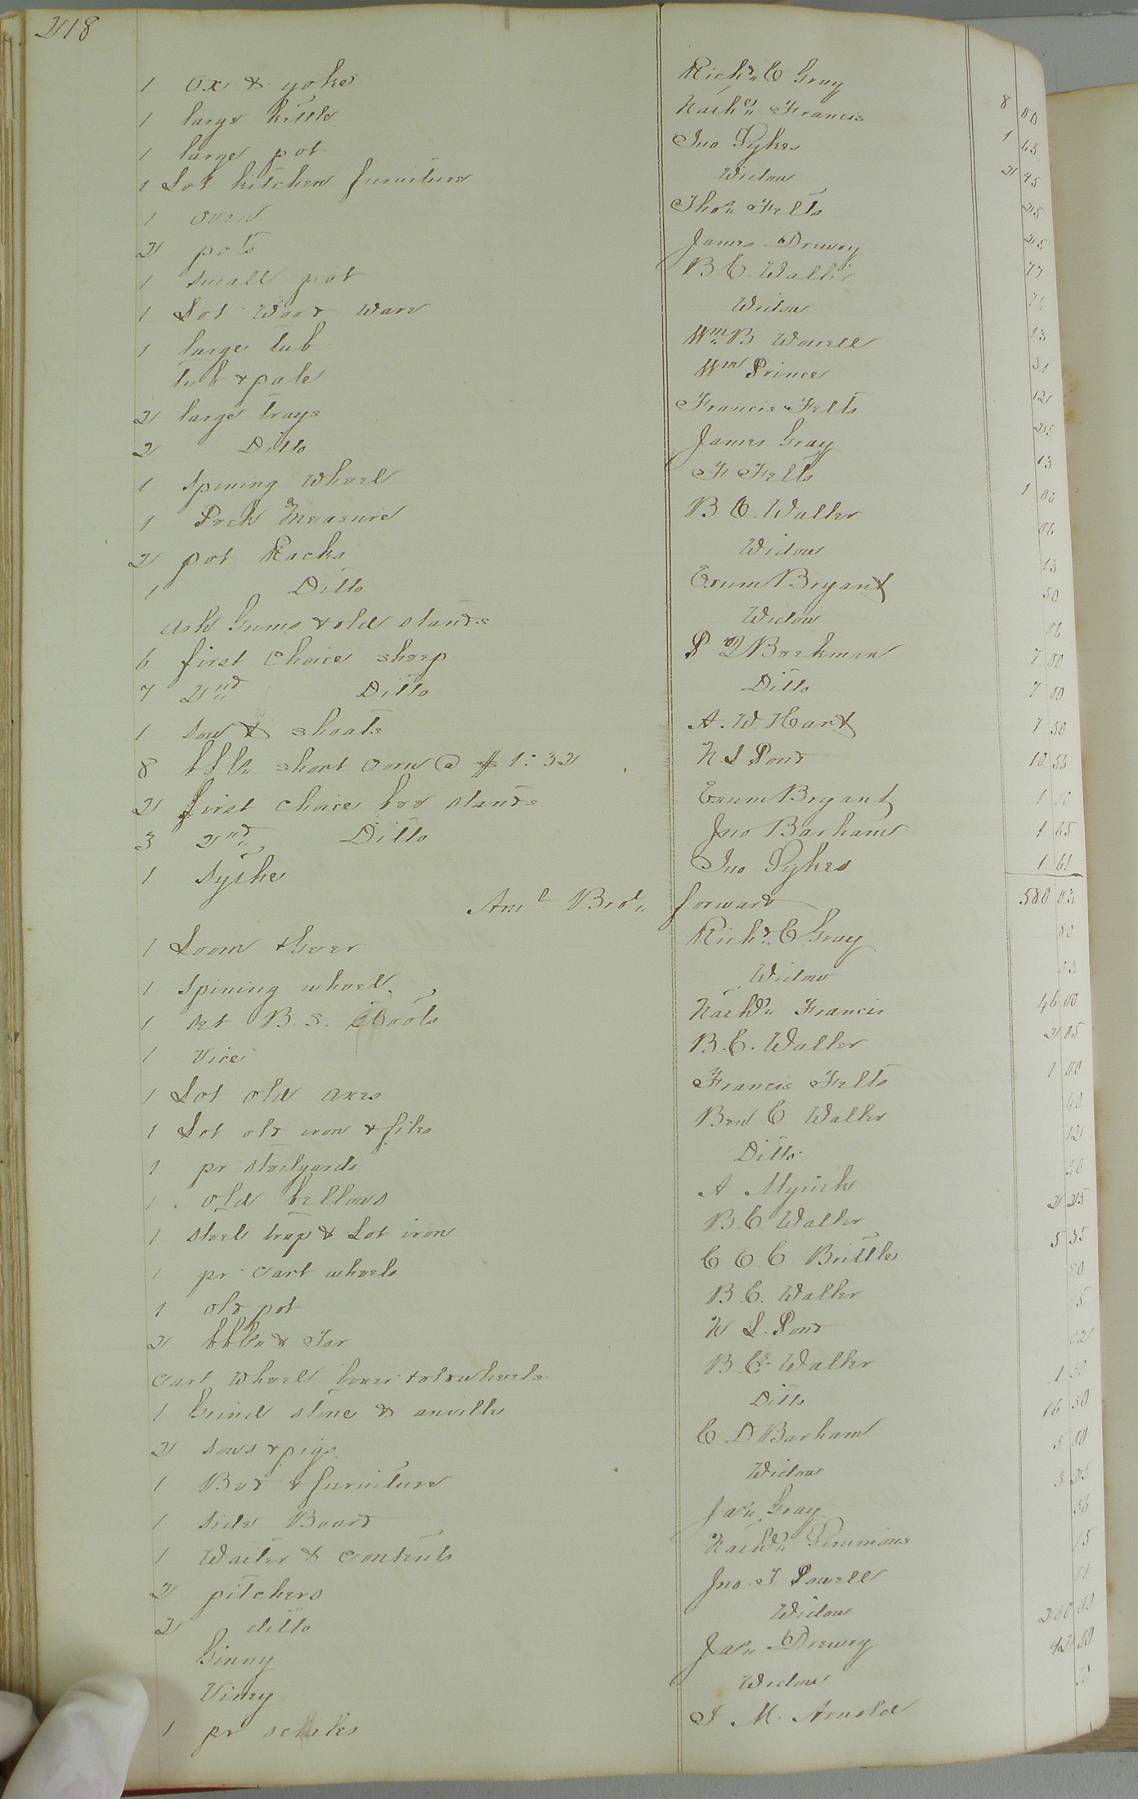 218
1 Ox & yoke Richd C Gray
1 large kittle Nathl Francis 8 00
1 large pot Jno Sykes 1 65
1 Lot kitchen furniture Widow 2 45
1 oven Thos Felts 25
2 pots James Drewry 25
1 small pot B C. Waller 77
1 Lot Wood Ware Widow
1 large tub Wm B Worrell 13
tub & pale Wm Prince
2 large trays Francis Felts 12
2 Ditto James Gray 25
1 spining Wheel F Felts 13
1 Peck Measure B C. Waller 1 00
2 pot Racks Widow 06
1 Ditto Exum Bryant 13
Ash Gums & old stands Widow 50
6 first choice sheep P D Beekman 06
7 2nd Ditto Ditto 7 00
1 sow & shoats A. W. Hart 7 00
8 bbls short corn @ $1:32 N L Pond 7 50
2 first choice bee stands Exum Bryant 10 56
3 2nd Ditto Jno Barham 1 00
1 Sythe Jno Sykes 1 65
Amt Brot forward 1 61
1 Loom & Geer Richd C Gray 580 03
1 spining wheel Widow 80
1 set B. S. Tools Nathl Francis
1 Vice B. C. Waller 46 00
1 Lot old axes Francis Felts 2 05
1 Lot old iron & files Ben C Waller 1 00
1 pr steelyards Ditto 40
1 old bellows A Myrick 12
1 steel trap & Lot iron B. C. Waller 56
1 pr cart wheels C C. C Brittle 2 25
1 old pot B C. Waller 5 35
2 bbls & Tar N L. Pond
cart wheel & old wheels B C. Waller
1 Grind stone & anville Ditto
2 sows & pigs C D. Barham 1 50
1 Bed & furniture Widow 16 50
1 side Board Jas Gray 5 00
1 Waiter & contents Nathl Simmons
2 pitchers Jno. T Powell
2 ditto Widow
Ginny Jas Drewry
Viney Widow
1 pr scales J M. Arnold